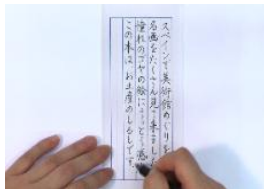 スペインで美術館めぐりを
名画をたくさん見て来ました
憧れのゴヤの絵にはうっとり感
この本は お土産のしるしです